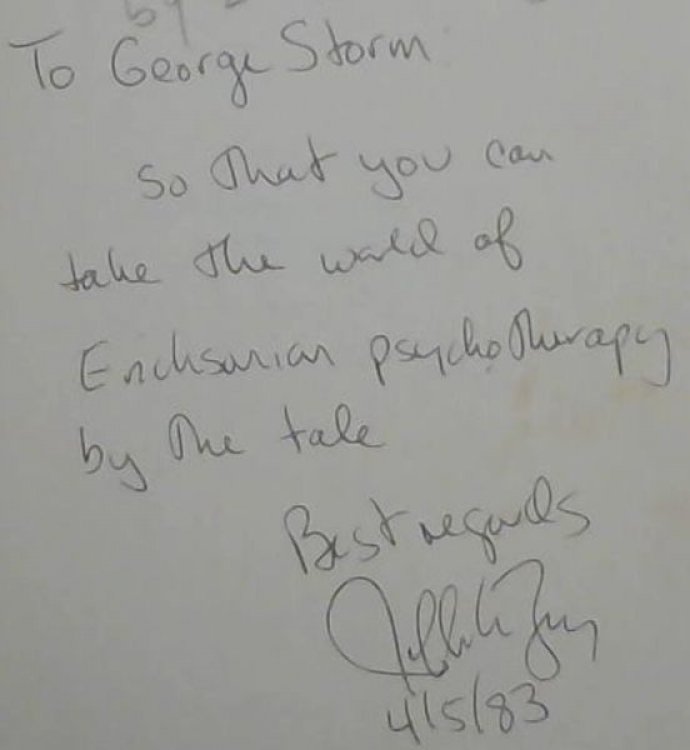 by
To George Storm
so that you can
take the world of
Ericksonian psychotherapy
by the tale
Best regards
4/5/83